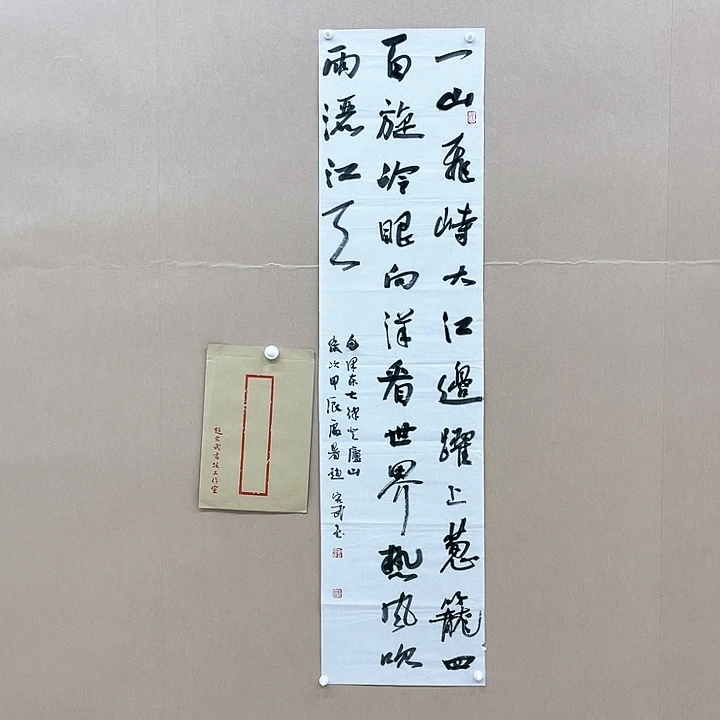 一山飛峙大江邊躍上葱籠四
百旋冷眼向洋看世界熱風吹
雨灑江天
毛澤東七律登廬山
歲次甲辰處暑趙宏武書
趙宏武書法工作室